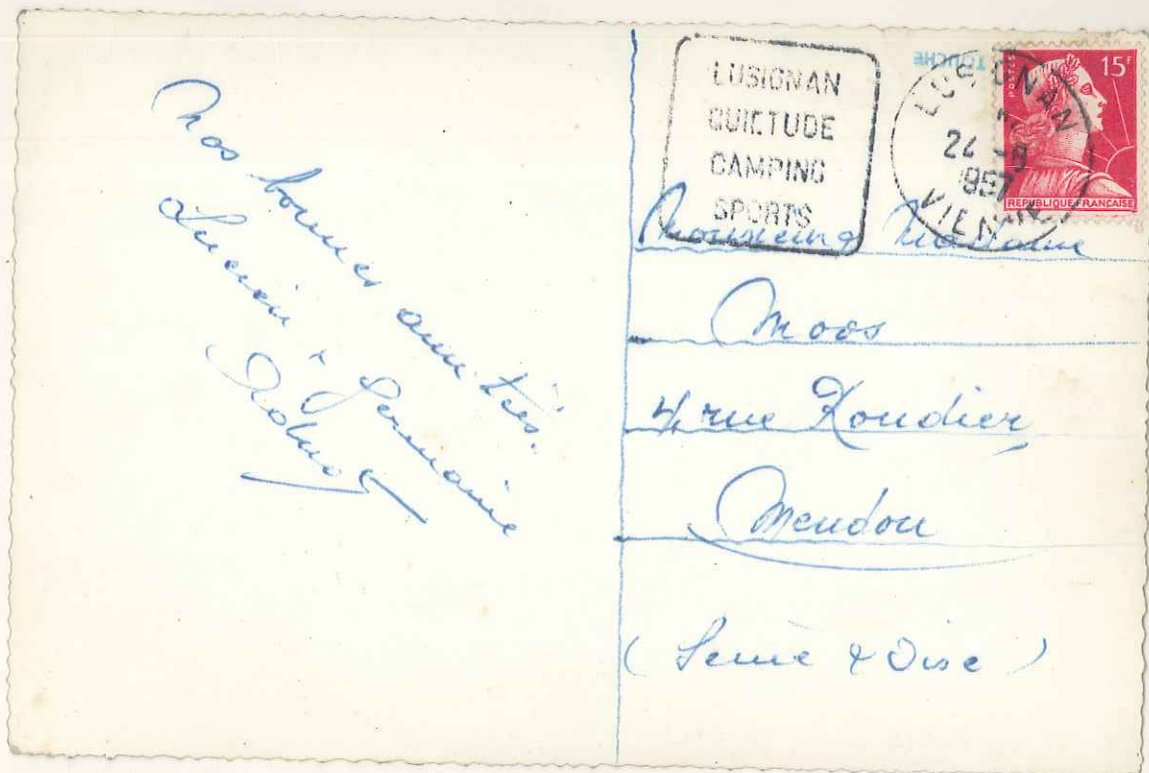 Nos bonnes amitiés.
Lucien & Germaine
LUSIGNAN
QUIETUDE
CAMPING
SPORTS
TOUCHE
LUSIGNAN
24 -9
1957
VIENNE
POSTES
15F
REPUBLIQUE FRANÇAISE
Monsieur & Madame
Moos
4 rue Roudier
Meudon
(Seine & Oise)